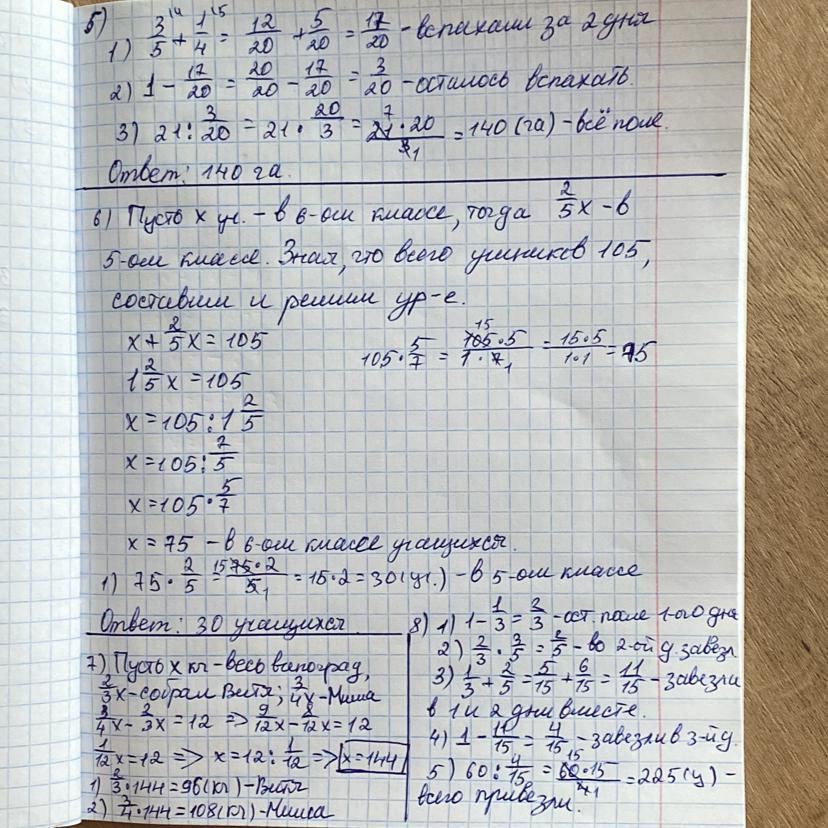 5)
1) 3/5 + 1/4 = 12/20 + 5/20 = 17/20 - вспахали за 2 дня
2) 1 - 17/20 = 20/20 - 17/20 = 3/20 - осталось вспахать.
3) 21 : 3/20 = 21 · 20/3 = 21·20/3 = 140 (га) - всё поле.
Ответ: 140 га.
6) Пусть х уч. - в 6-ом классе, тогда 2/5 х - в
5-ом классе. Зная, что всего учеников 105,
составим и решим ур-е.
х + 2/5 х = 105
105 · 5/7 = 105·5/1·7 = 15·5/1·1 = 75
1 2/5 х = 105
х = 105 : 1 2/5
х = 105 : 7/5
х = 105 · 5/7
х = 75 - в 6-ом классе учащихся.
1) 75 · 2/5 = 75·2/5 = 15·2 = 30 (уч.) - в 5-ом классе
Ответ: 30 учащихся.
7) Пусть х кг - весь виноград,
2/3 х - собрал Витя; 3/4 х - Миша
3/4 х - 2/3 х = 12 => 9/12 х - 8/12 х = 12
1/12 х = 12 => х = 12 : 1/12 => х = 144
1) 2/3 · 144 = 96 (кг) - Витя
2) 3/4 · 144 = 108 (кг) - Миша
8) 1) 1 - 1/3 = 2/3 - ост. после 1-ого дня
2) 2/3 · 3/5 = 2/5 - во 2-ой д. завезл
3) 1/3 + 2/5 = 5/15 + 6/15 = 11/15 - завезли
в 1 и 2 дни вместе.
4) 1 - 11/15 = 4/15 - завезли в 3-й д.
5) 60 : 4/15 = 60·15/4 = 225 (ц) -
всего привезли.